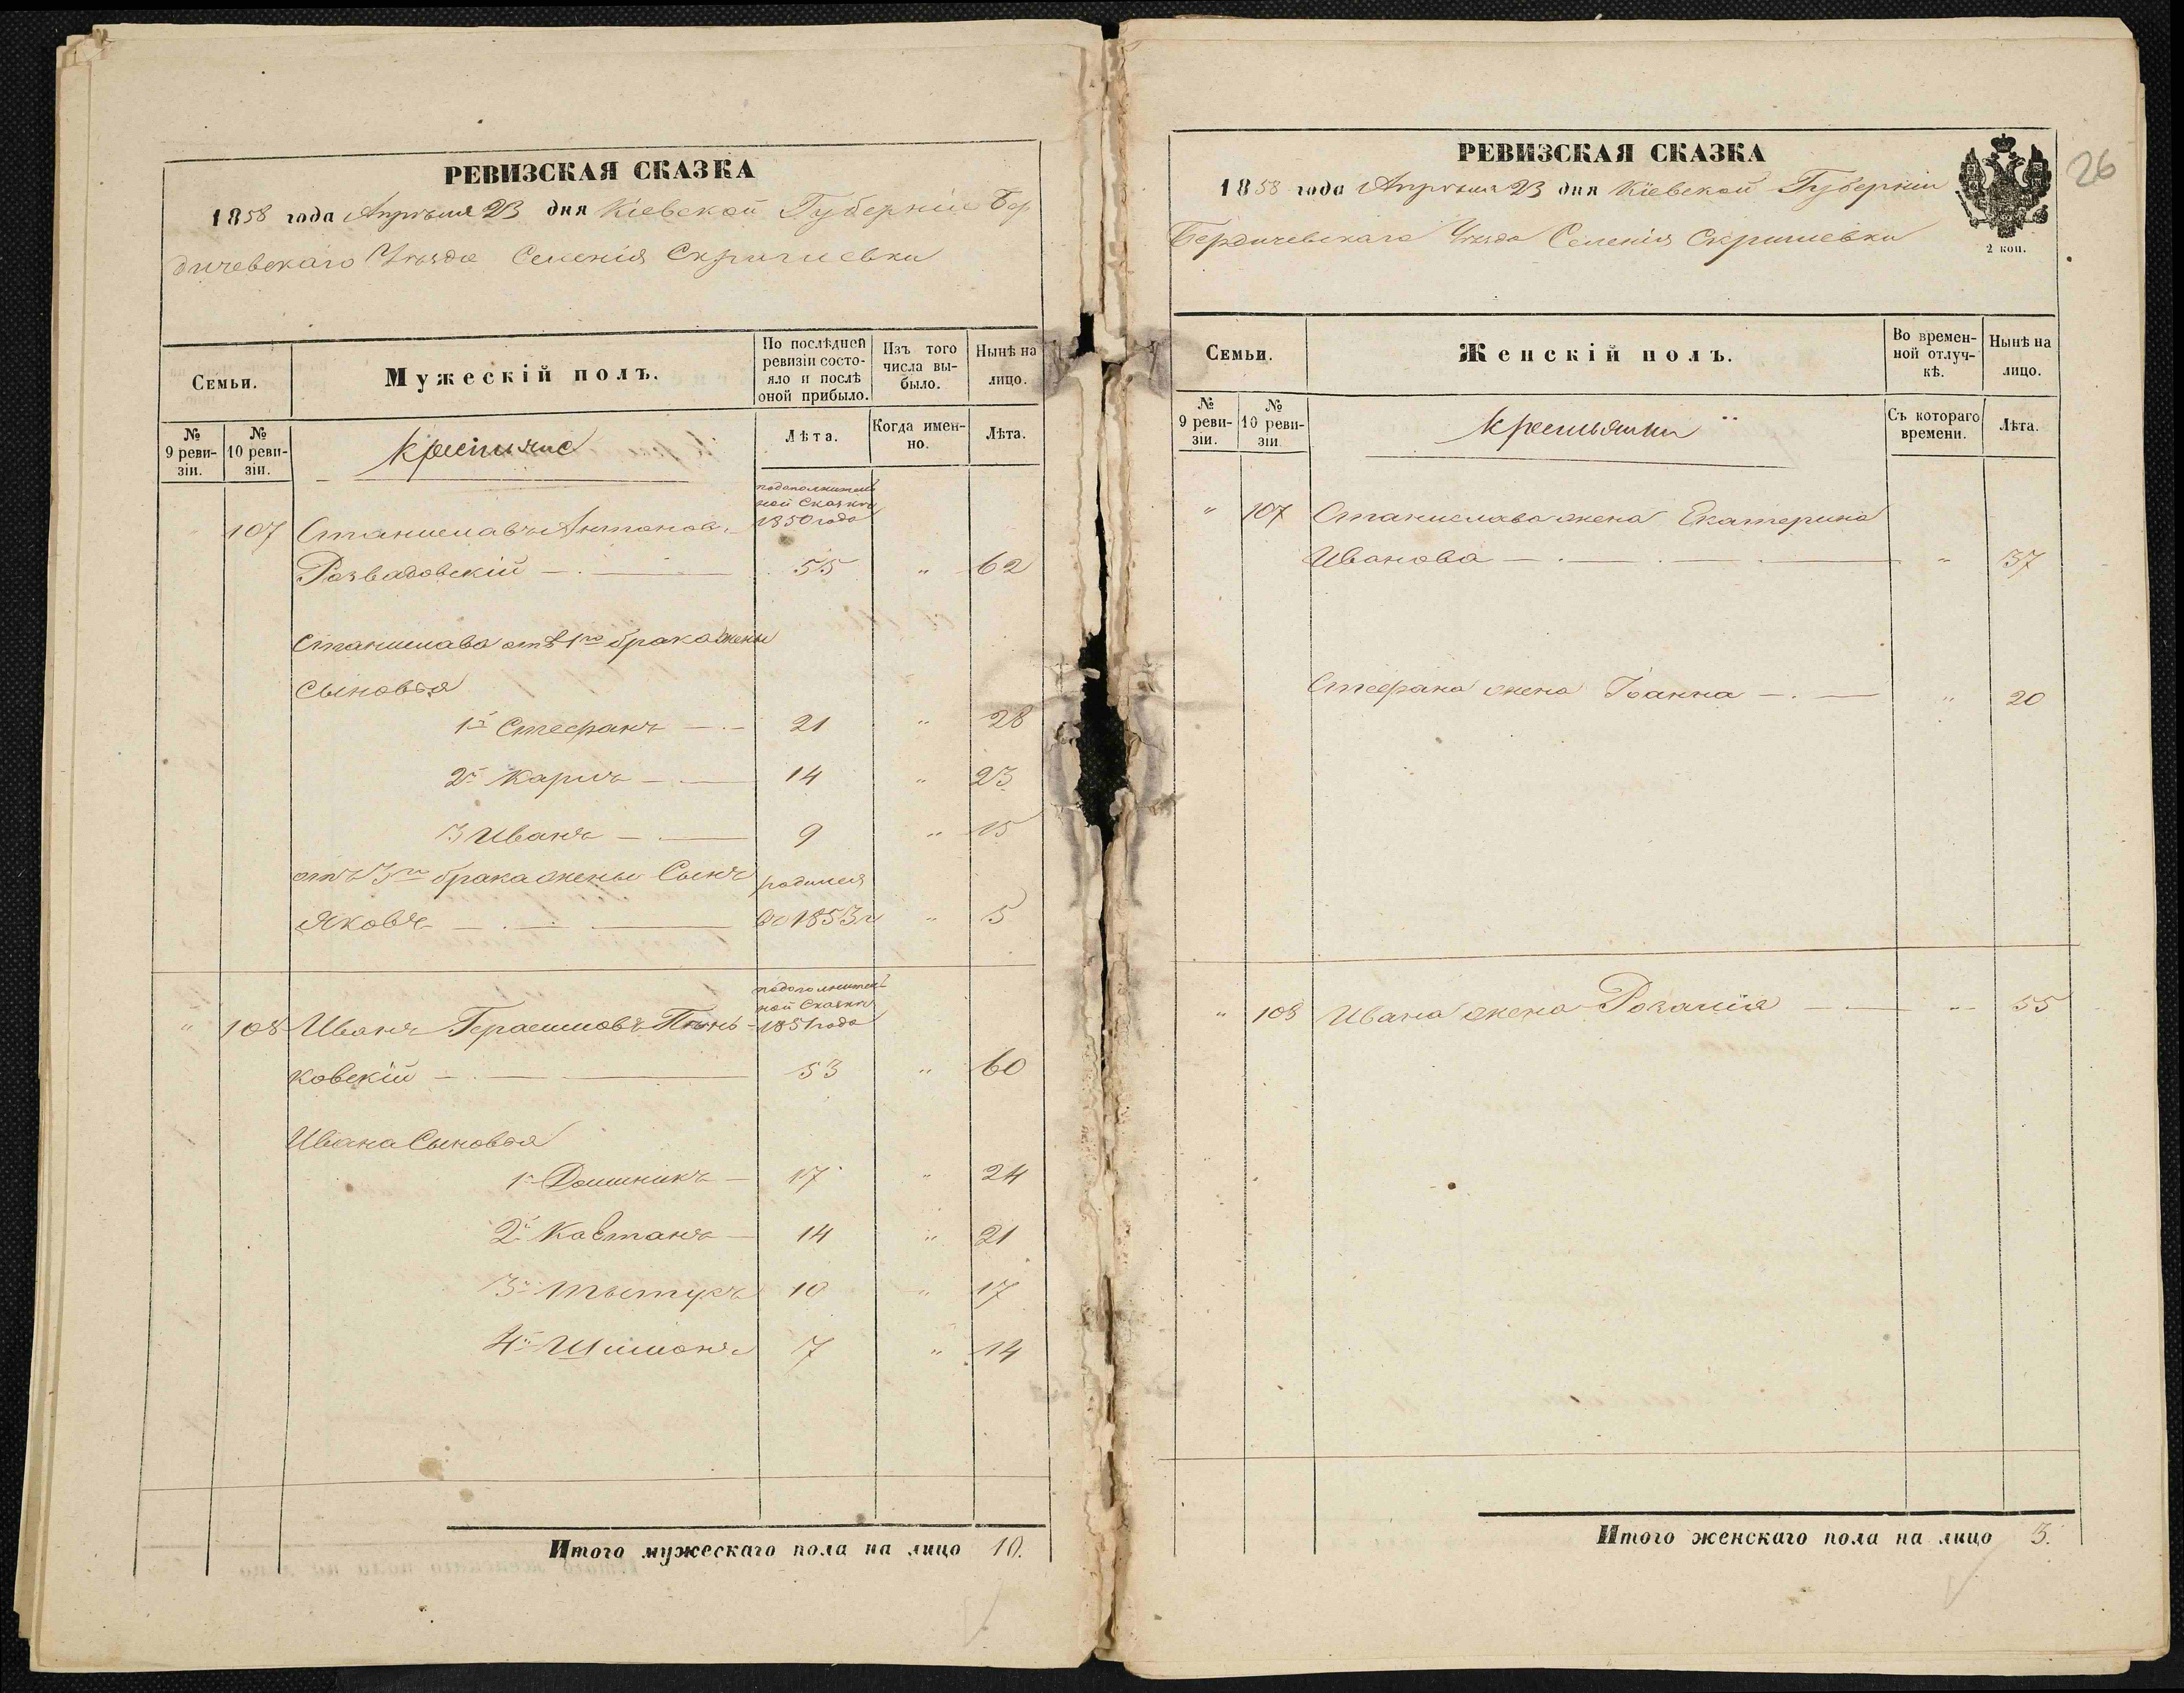 РЕВИЗСКАЯ СКАЗКА
1858 года Апрѣля 23 дня Кіевской Губерніи Бер
дичевскаго Уѣзда Селенія Скригилевки
Семьи.
Мужескій полъ.
По послѣдней ревизіи состояло и послѣ оной прибыло.
Изъ того числа выбыло.
Нынѣ на лицо.
№ 9 ревизіи.
№ 10 ревизіи.
Крестьяне
Лѣта.
Когда именно.
Лѣта.
подополнитель
ной Сказки
107 Станиславъ Антонов. 1850 года
Розвадовскій 55 " 62
Станислава отъ 1го брака жены
Сыновья
1й Стефанъ 21 " 28
2й Карлъ 14 " 23
3 Иванъ 9 " 15
отъ 3го брака жены Сынъ родился
Яковъ въ 1853 г " 5
подополнитель
ной Сказки
" 108 Иванъ Герасимовъ 1851 года
ковскій 53 " 60
Ивана Сыновья
1й Доминикъ 17 " 24
2й Каетанъ 14 " 21
3й 10 " 17
4й Шимонъ 7 " 14
Итого мужескаго пола на лицо 10.
РЕВИЗСКАЯ СКАЗКА
26
1858 года Апрѣля 23 дня Кіевской Губерніи
Бердичевскаго Уѣзда Селенія Скригилевки
2 коп.
Семьи.
Женскій полъ.
Во временной отлучкѣ.
Нынѣ на лицо.
№ 9 ревизіи.
№ 10 ревизіи.
Крестьянки
Съ котораго времени.
Лѣта.
" 107 Станислава жена Екатерина
Иванова " 37
Стефана жена Іоанна " 20
" 108 Ивана жена Розалія " 55
Итого женскаго пола на лицо 3.